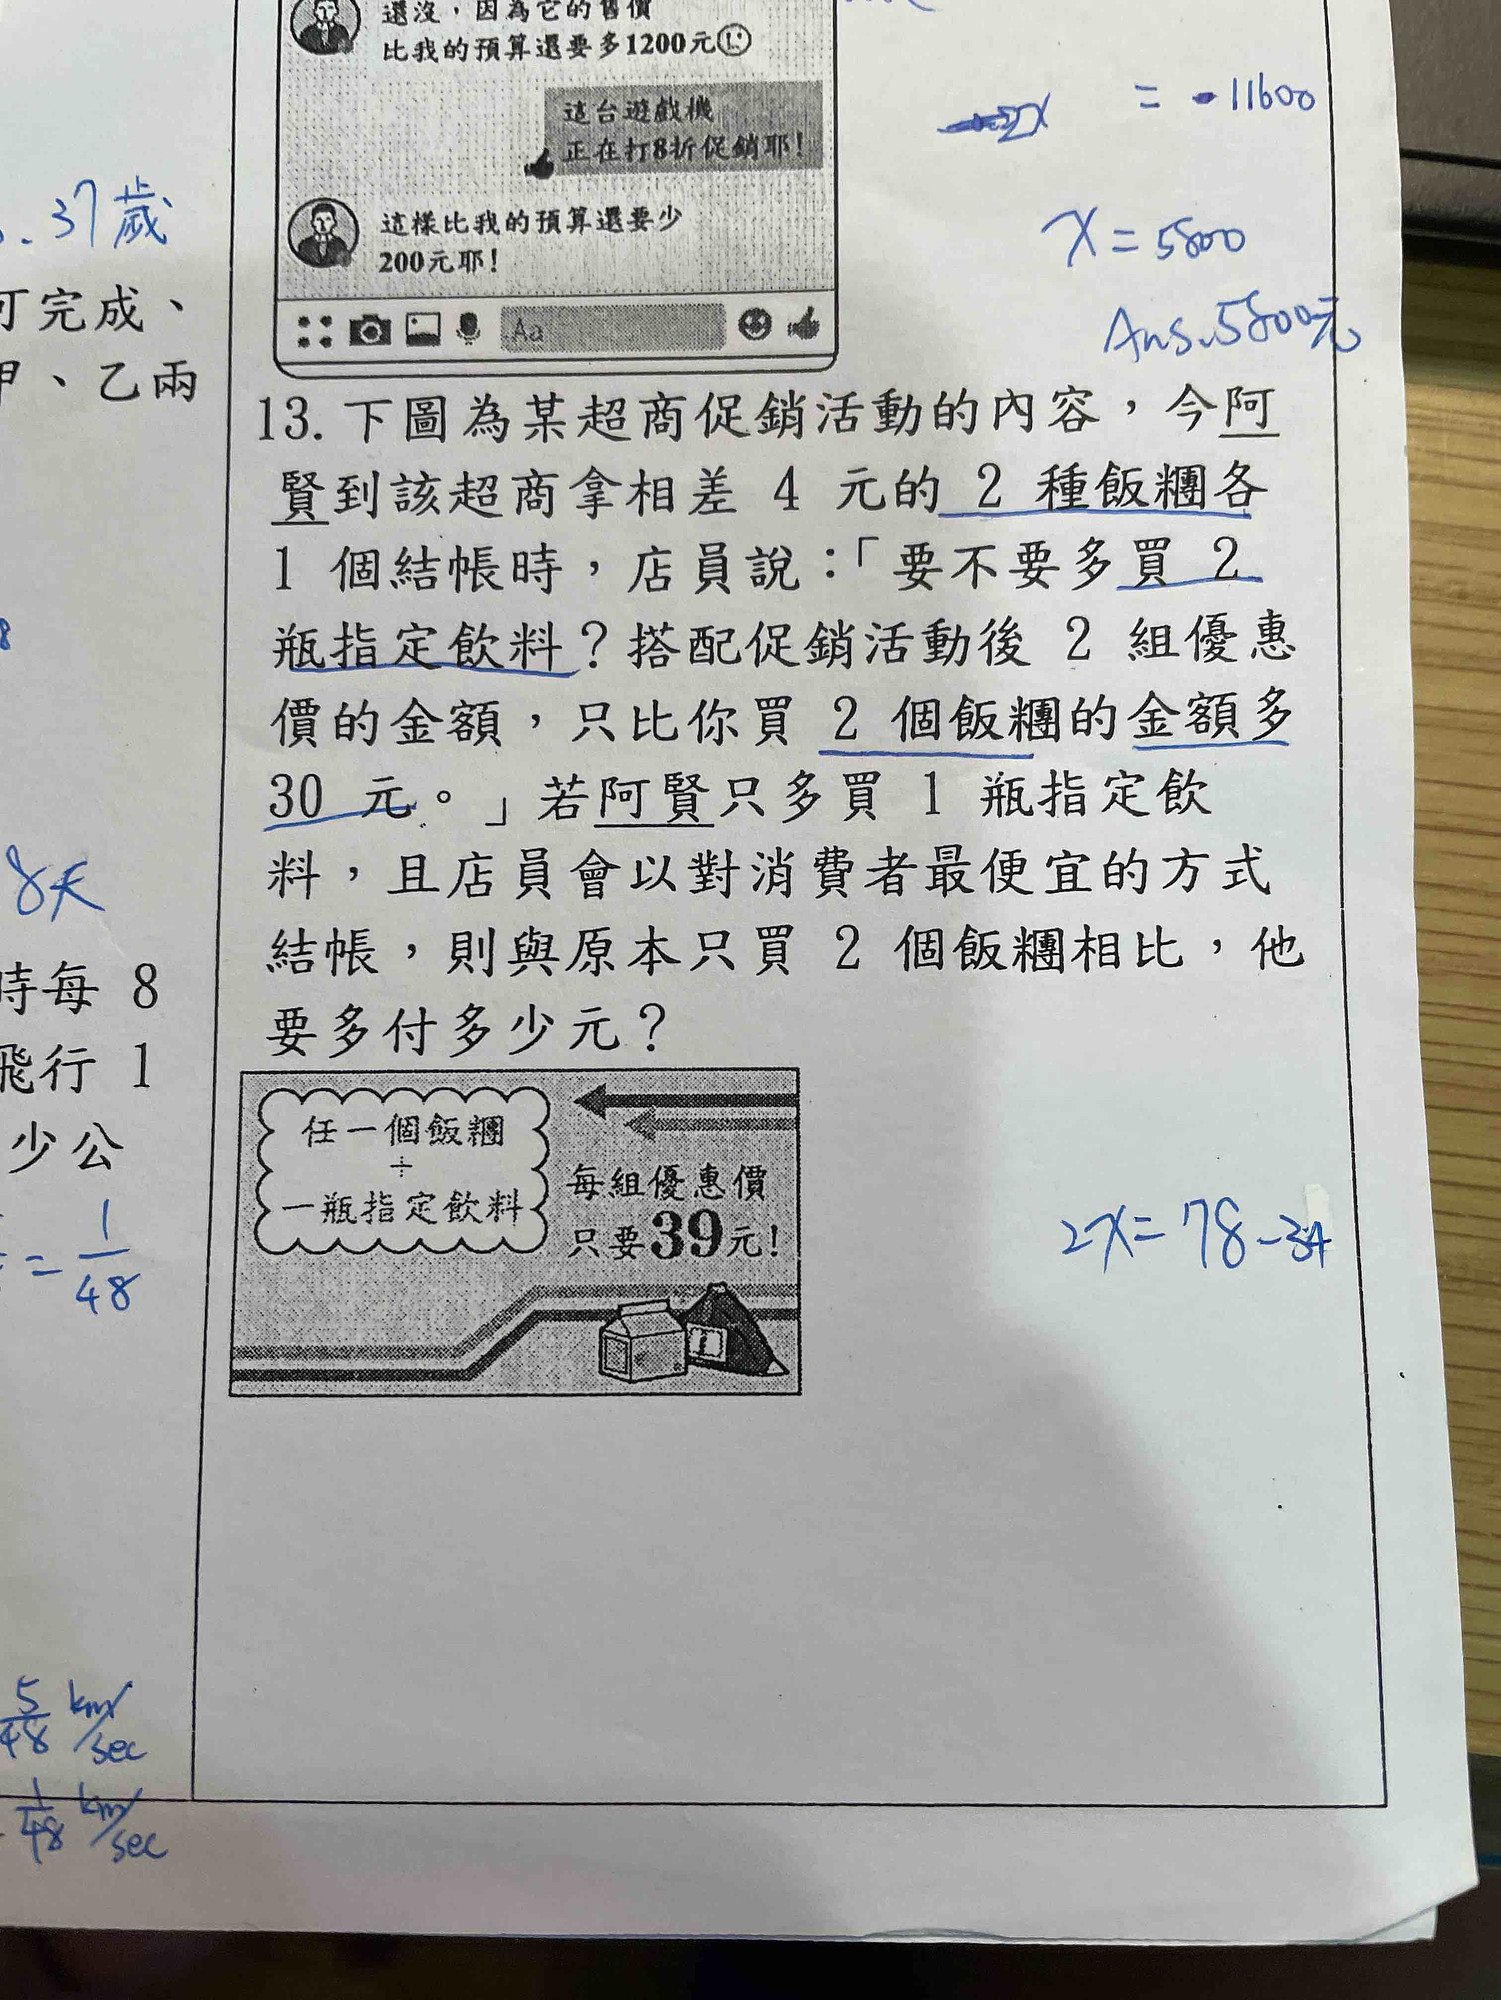 還沒，因為它的售價
比我的預算還要多1200元
這台遊戲機
正在打8折促銷耶！
這樣比我的預算還要少
200元耶！
Aa
= -11600
x = 5800
Ans. 5800元
37歲
可完成、
甲、乙兩
8天
時每 8
飛行 1
少公
= 1/48
5/48 km/sec
1/48 km/sec
13. 下圖為某超商促銷活動的內容，今阿
賢到該超商拿相差 4 元的 2 種飯糰各
1 個結帳時，店員說：「要不要多買 2
瓶指定飲料？搭配促銷活動後 2 組優惠
價的金額，只比你買 2 個飯糰的金額多
30 元。」若阿賢只多買 1 瓶指定飲
料，且店員會以對消費者最便宜的方式
結帳，則與原本只買 2 個飯糰相比，他
要多付多少元？
任一個飯糰
+
一瓶指定飲料
每組優惠價
只要39元！
2x = 78 - 34